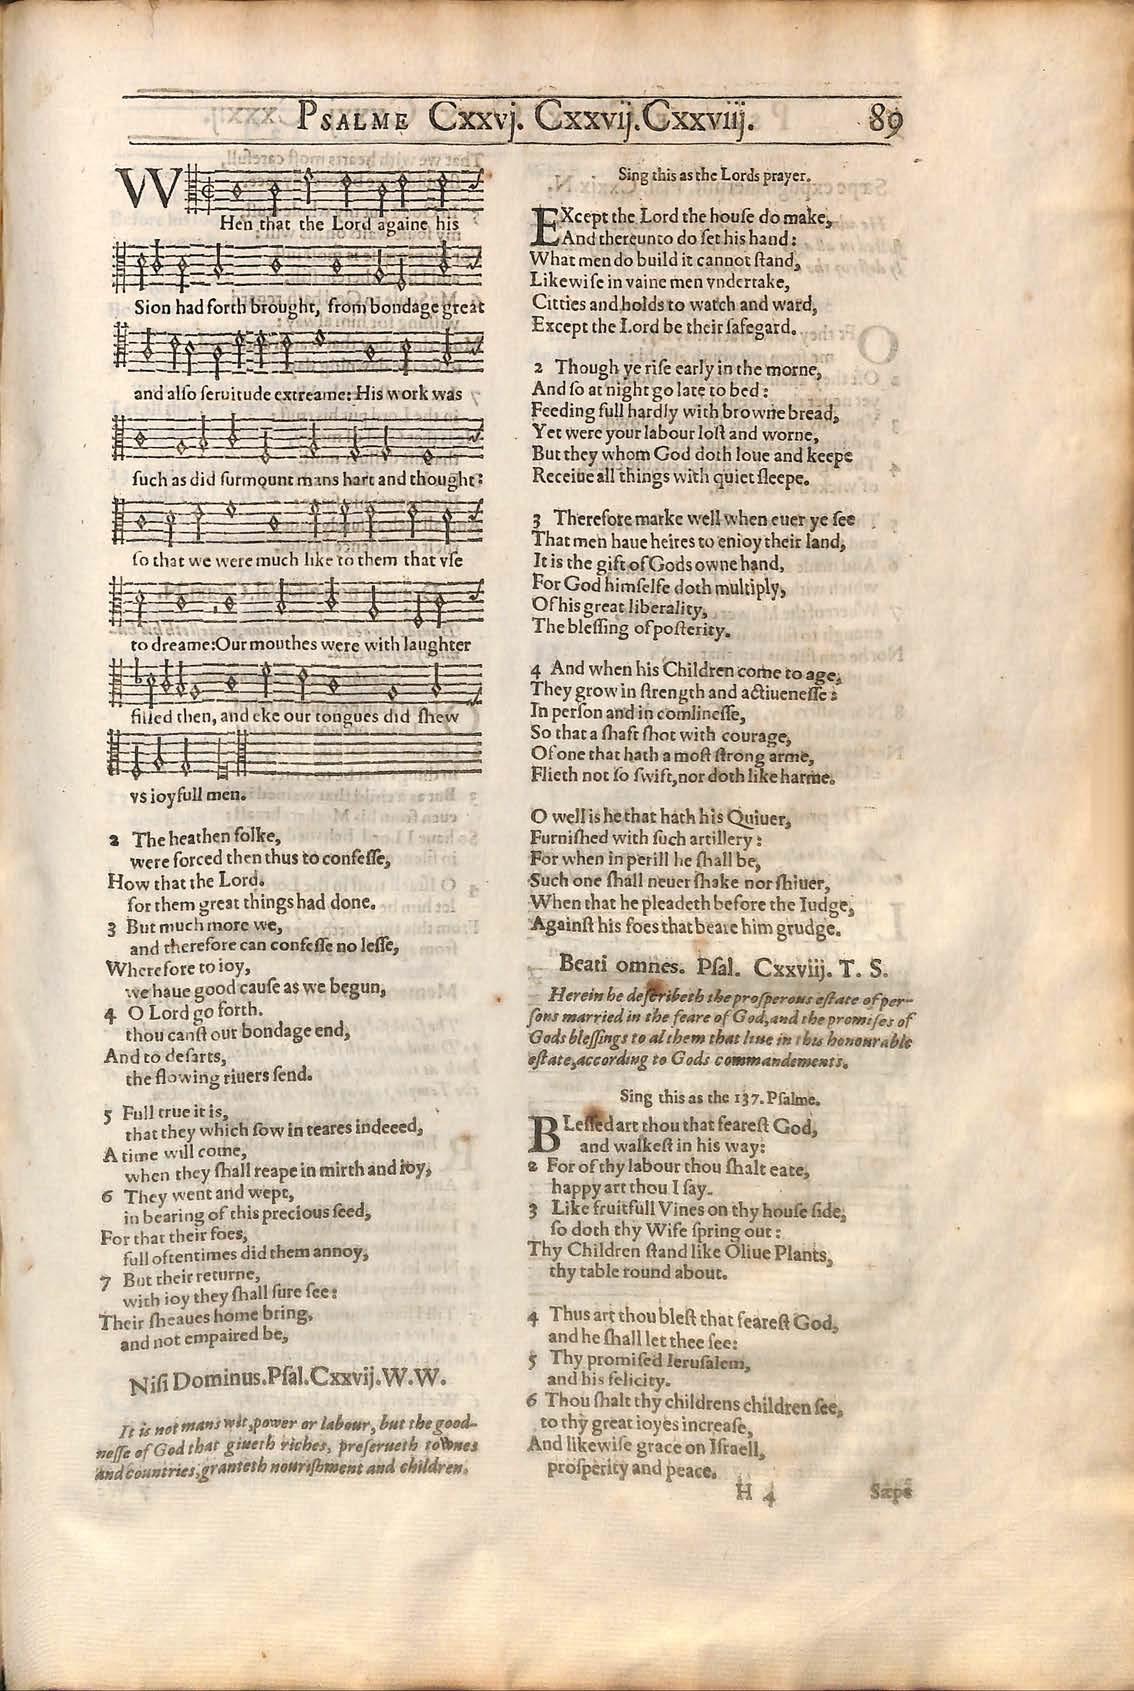 PSALME Cxxvj. Cxxvij. Cxxviij. 89
WHen that the Lord againe his
Sion had forth brought, from bondage great
and also ſeruitude extreame: His work was
ſuch as did ſurmount mans hart and thought:
ſo that we were much like to them that vſe
to dreame: Our mouthes were with laughter
filled then, and eke our tongues did ſhew
vs ioyfull men.
2 The heathen folke,
were forced then thus to confeſſe,
How that the Lord.
for them great things had done.
3 But much more we,
and therefore can confeſſe no leſſe,
Wherefore to ioy,
we haue good cauſe as we begun,
4 O Lord go forth.
thou canſt our bondage end,
And to deſarts,
the flowing riuers ſend.
5 Full true it is,
that they which ſow in teares indeeed,
A time will come,
when they ſhall reape in mirth and ioy,
6 They went and wept,
in bearing of this precious ſeed,
For that their foes,
full oftentimes did them annoy,
7 But their returne,
with ioy they ſhall ſure ſee:
Their ſheaues home bring,
and not empaired be,
Niſi Dominus. Pſal. Cxxvij. W. W.
It is not mans wit, power or labour, but the good-
neſſe of God that giueth riches, preſerueth townes
and countries, granteth nouriſhment and children.
Sing this as the Lords prayer.
EXcept the Lord the houſe do make,
And thereunto do ſet his hand:
What men do build it cannot ſtand,
Likewiſe in vaine men vndertake,
Citties and holds to watch and ward,
Except the Lord be their ſafegard.
2 Though ye riſe early in the morne,
And ſo at night go late to bed:
Feeding full hardly with browne bread,
Yet were your labour loſt and worne,
But they whom God doth loue and keepe
Receiue all things with quiet ſleepe.
3 Therefore marke well when euer ye ſee
That men haue heires to enioy their land,
It is the gift of Gods owne hand,
For God himſelfe doth multiply,
Of his great liberality,
The bleſſing of poſterity.
4 And when his Children come to age,
They grow in ſtrength and actiueneſſe:
In perſon and in comlineſſe,
So that a ſhaft ſhot with courage,
Of one that hath a moſt ſtrong arme,
Flieth not ſo ſwift, nor doth like harme.
O well is he that hath his Quiuer,
Furniſhed with ſuch artillery:
For when in perill he ſhall be,
Such one ſhall neuer ſhake nor ſhiuer,
When that he pleadeth before the Iudge,
Againſt his foes that beare him grudge.
Beati omnes. Pſal. Cxxviij. T. S.
Herein he deſcribeth the proſperous eſtate of per-
ſons married in the feare of God, and the promiſes of
Gods bleſſings to al them that liue in this honourable
eſtate, according to Gods commandements.
Sing this as the 137. Pſalme.
BLeſſed art thou that feareſt God,
and walkeſt in his way:
2 For of thy labour thou ſhalt eate,
happy art thou I ſay.
3 Like fruitfull Vines on thy houſe ſide,
ſo doth thy Wife ſpring out:
Thy Children ſtand like Oliue Plants,
thy table round about.
4 Thus art thou bleſt that feareſt God,
and he ſhall let thee ſee:
5 Thy promiſed Ieruſalem,
and his felicity.
6 Thou ſhalt thy childrens children ſee,
to thy great ioyes increaſe,
And likewiſe grace on Iſraell,
proſperity and peace.
H 4 Sæpe